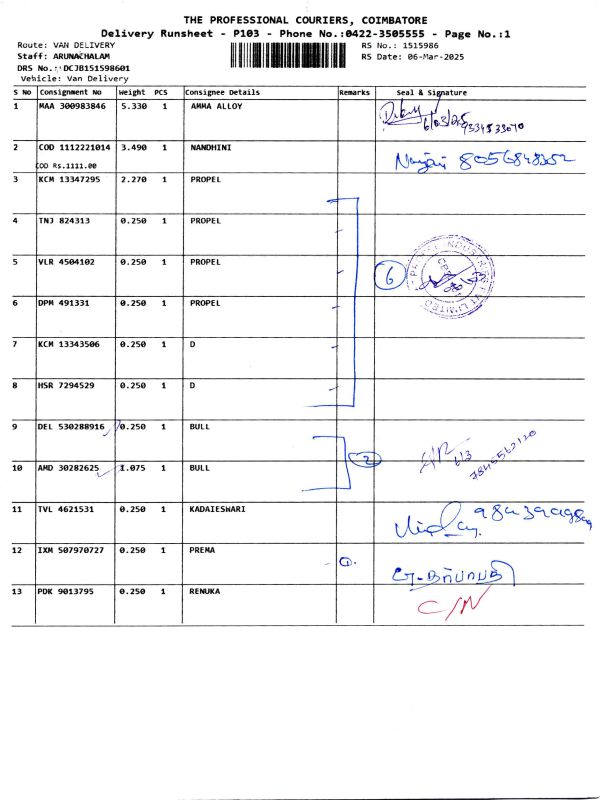 THE PROFESSIONAL COURIERS, COIMBATORE
Delivery Runsheet - P103 - Phone No.:0422-3505555 - Page No.:1
Route: VAN DELIVERY RS No.: 1515986
Staff: ARUNACHALAM RS Date: 06-Mar-2025
DRS No.: DCJB151598601
Vehicle: Van Delivery
S No Consignment No Weight PCS Consignee Details Remarks Seal & Signature
1 MAA 300983846 5.330 1 AMMA ALLOY
6/03/025
2 COD 1112221014 3.490 1 NANDHINI 8056848352
COD Rs.1111.00
3 KCM 13347295 2.270 1 PROPEL
4 TNJ 824313 0.250 1 PROPEL
5 VLR 4504102 0.250 1 PROPEL 6
6 DPM 491331 0.250 1 PROPEL
7 KCM 13343506 0.250 1 D
8 HSR 7294529 0.250 1 D
9 DEL 530288916 0.250 1 BULL
2 6/3 7845562120
10 AMD 30282625 1.075 1 BULL
11 TVL 4621531 0.250 1 KADAIESWARI
12 IXM 507970727 0.250 1 PREMA 1
13 PDK 9013795 0.250 1 RENUKA C/N